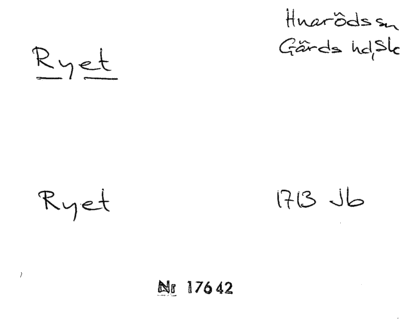 Hnarödssn
Gärds hd, Sk
Ryet
Ryet 1713 Jb
Nr 17642